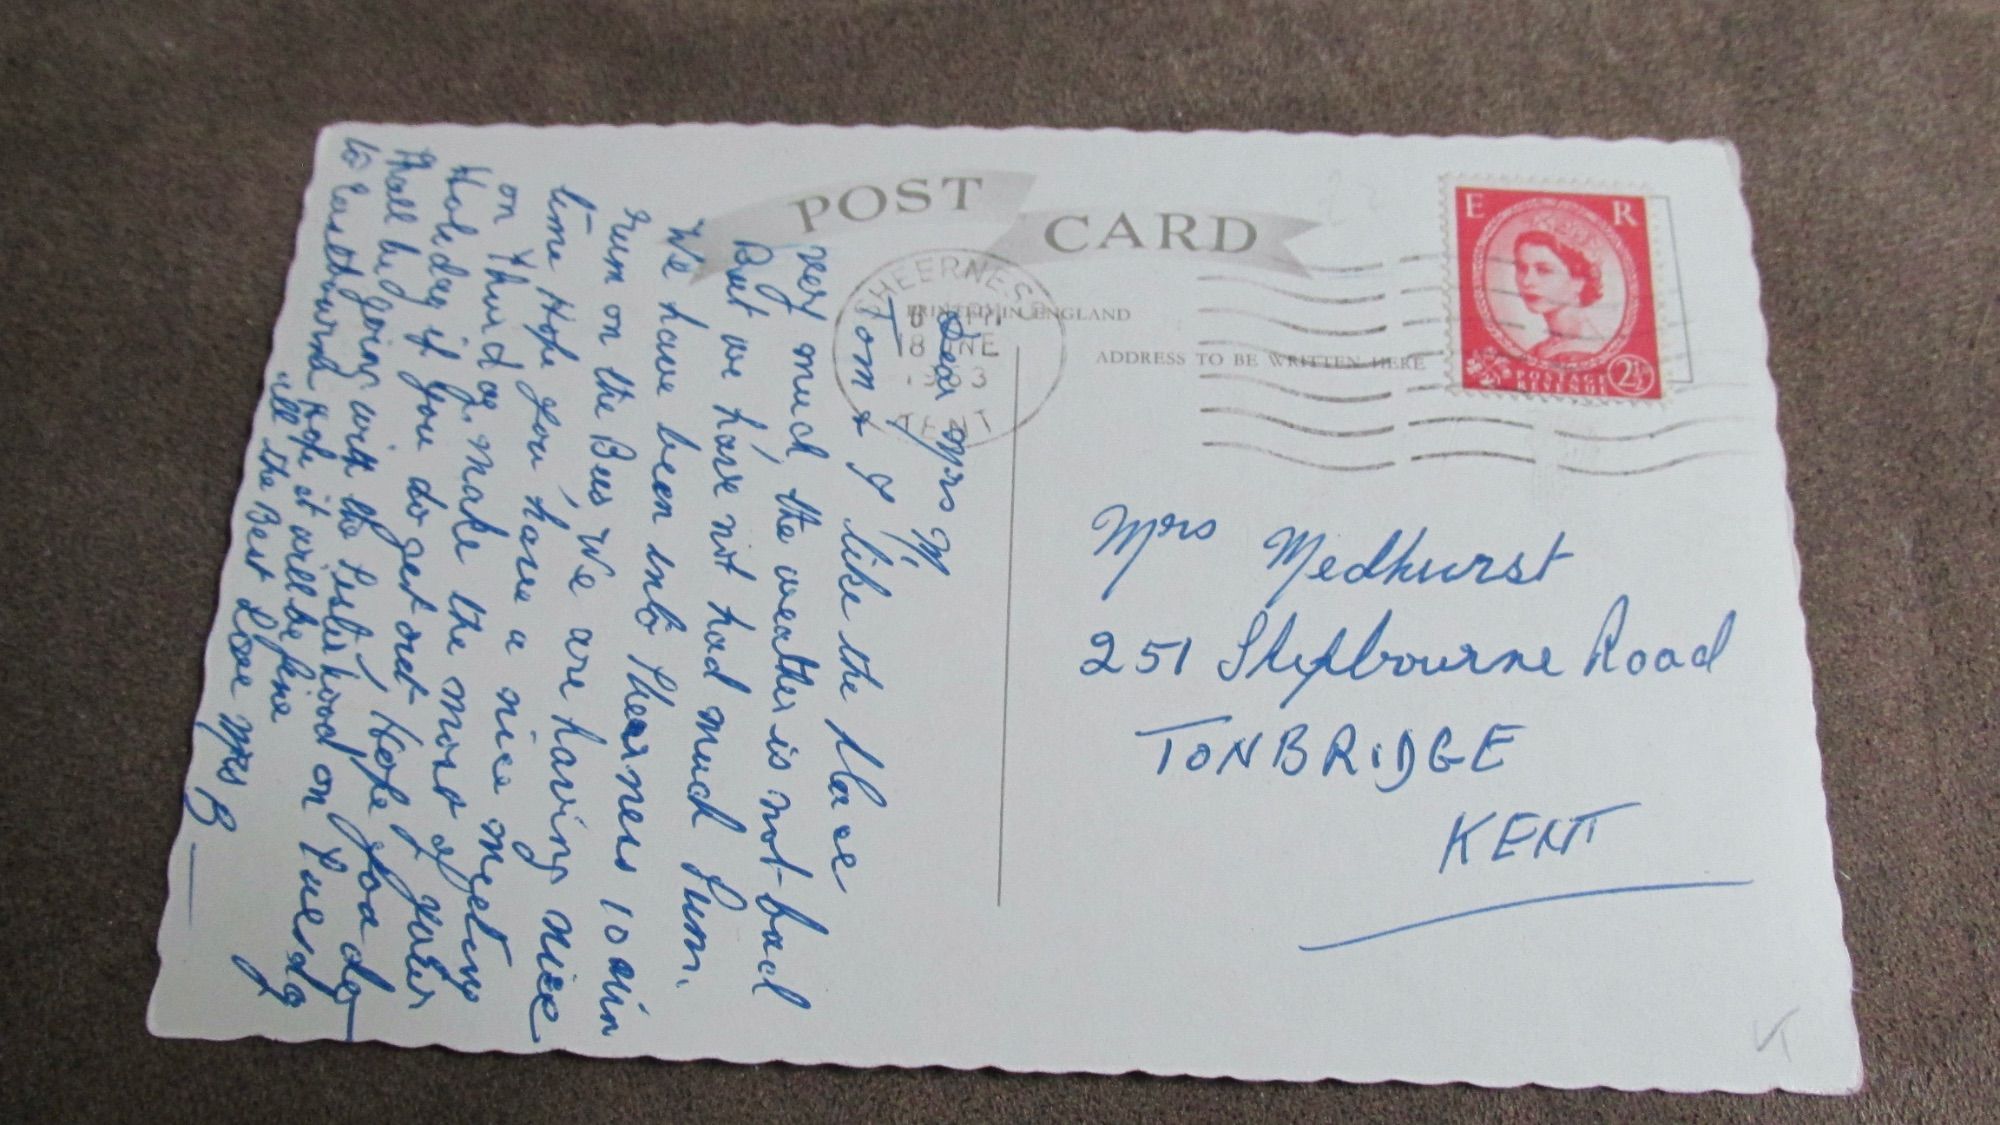 POST CARD
PRINTED IN ENGLAND
ADDRESS TO BE WRITTEN HERE
SHEERNESS
18 JNE
1963
KENT
E R
POSTAGE
2½
Dear Mrs M,
Tom & I like the place
very much, the weather is not bad
But we have not had much Sun.
We have been into Sheerness 10 min
run on the Bus, We are having nice
time Hope you have a nice meeting
on Thursday, make the most of your
Holiday if you do get out
Shall be going with the Sisterhood on Tuesday
to Eastbourne Hope it will be fine
all the Best Love Mrs B
Mrs Medhurst
251 Shipbourne Road
TONBRIDGE
KENT